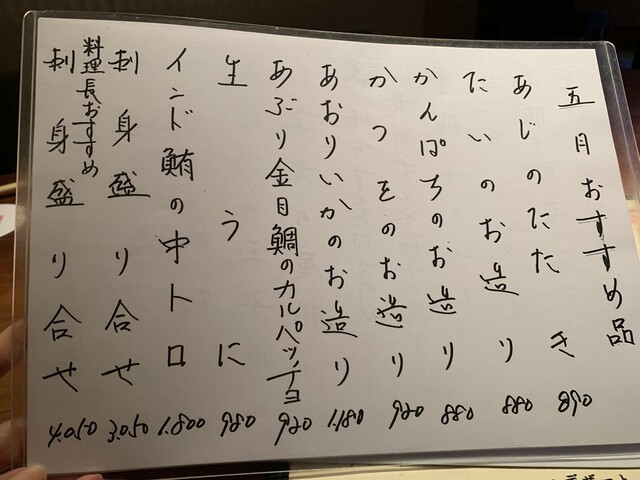 五月おすすめ品
あじのたたき 890
たいのお造り 880
かんぱちのお造り 880
かつをのお造り 920
あおりいかのお造り 1.180
あぶり金目鯛のカルパッチョ 920
生うに 980
インド鮪の中トロ 1.800
刺身盛り合せ 3.050
料理長おすすめ
刺身盛り合せ 4.050